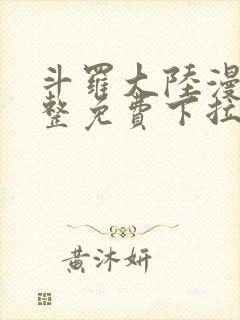 斗羅大陸漫
整免費下拉
黃沐妍